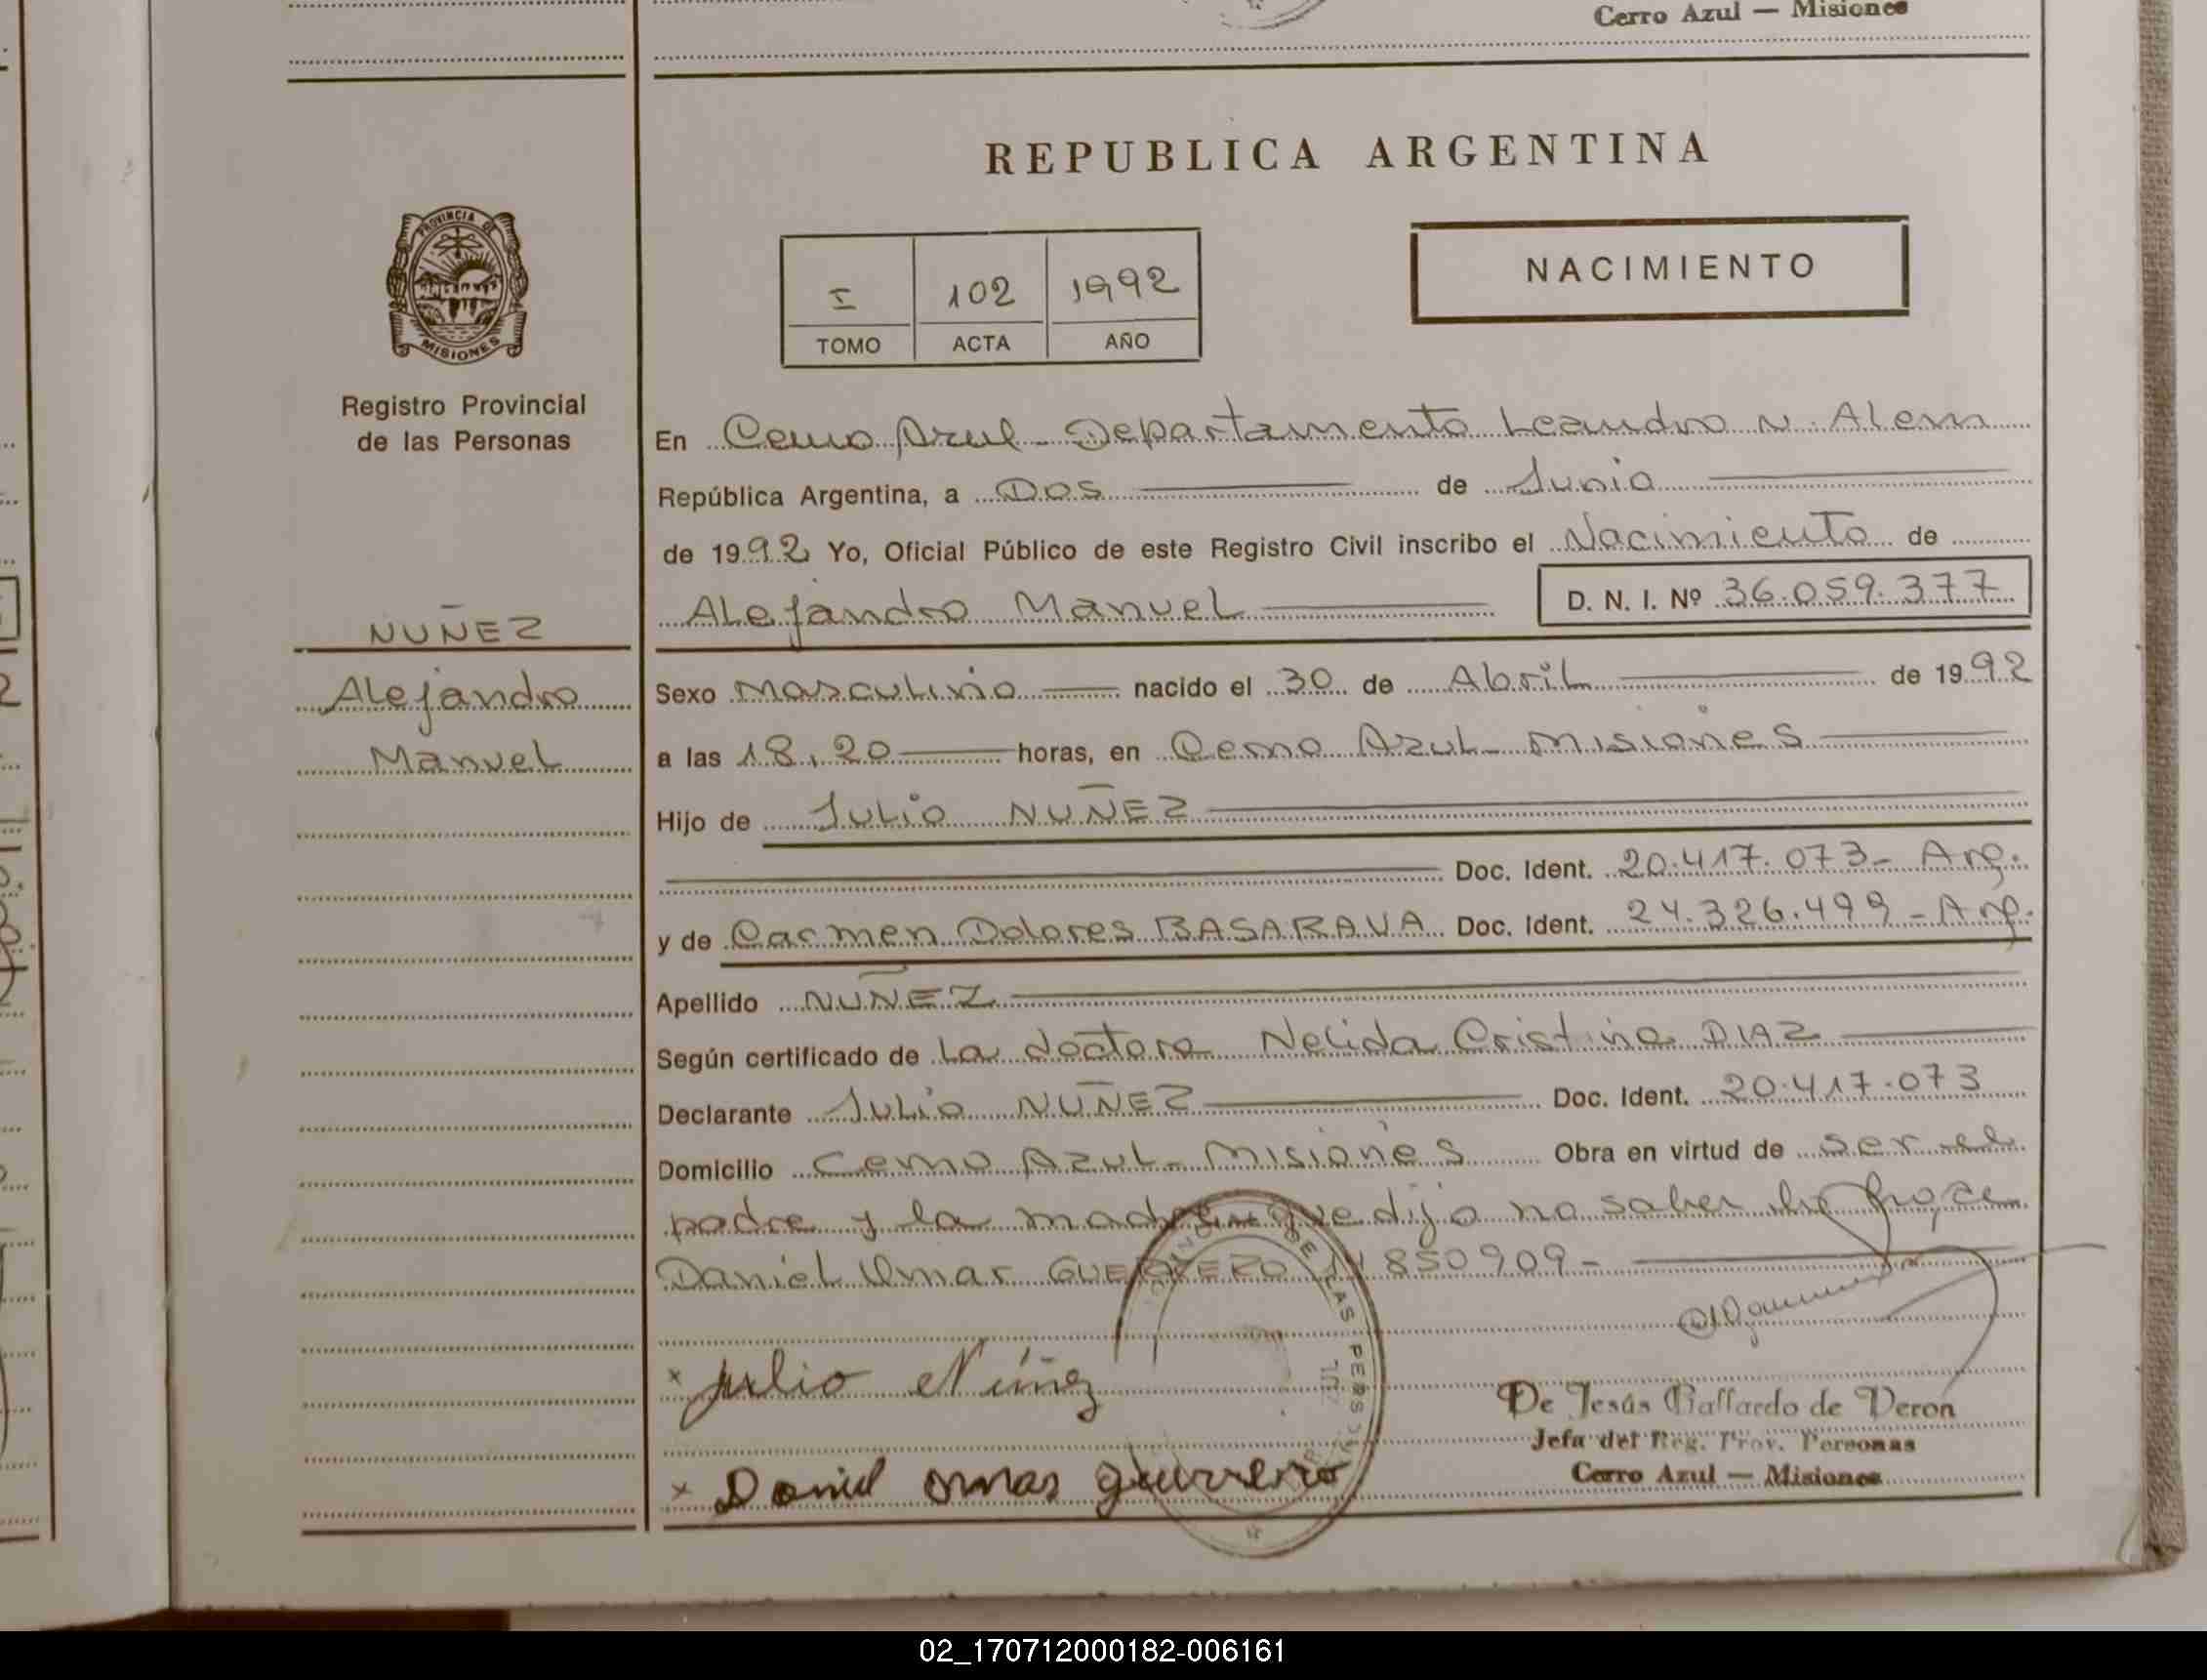 Cerro Azul — Misiones
REPUBLICA ARGENTINA
PROVINCIA DE
MISIONES
I 102 1992
TOMO ACTA AÑO
NACIMIENTO
Registro Provincial
de las Personas
En Cerro Azul - Departamento Leandro N. Alem
República Argentina, a Dos de Junio
de 1992 Yo, Oficial Público de este Registro Civil inscribo el Nacimiento de
Alejandro Manuel D. N. I. Nº 36.059.377
NUÑEZ
Alejandro
Manuel
Sexo Masculino nacido el 30 de Abril de 1992
a las 18,20 horas, en Cerro Azul - Misiones
Hijo de Julio NUÑEZ
Doc. Ident. 20.417.073 - Arg.
y de Carmen Dolores BASARAVA Doc. Ident. 24.326.499 - Arg.
Apellido NUÑEZ
Según certificado de La doctora Nelida Cristina DIAZ
Declarante Julio NUÑEZ Doc. Ident. 20.417.073
Domicilio Cerro Azul - Misiones Obra en virtud de ser el
padre y la madre que dijo no saber lo hace
Daniel Omar GUERRERO 850909 -
Julio Núñez
De Jesús Gallardo de Veron
Jefa del Reg. Prov. Personas
Cerro Azul — Misiones
x Daniel Omar Guerrero
02_170712000182-006161